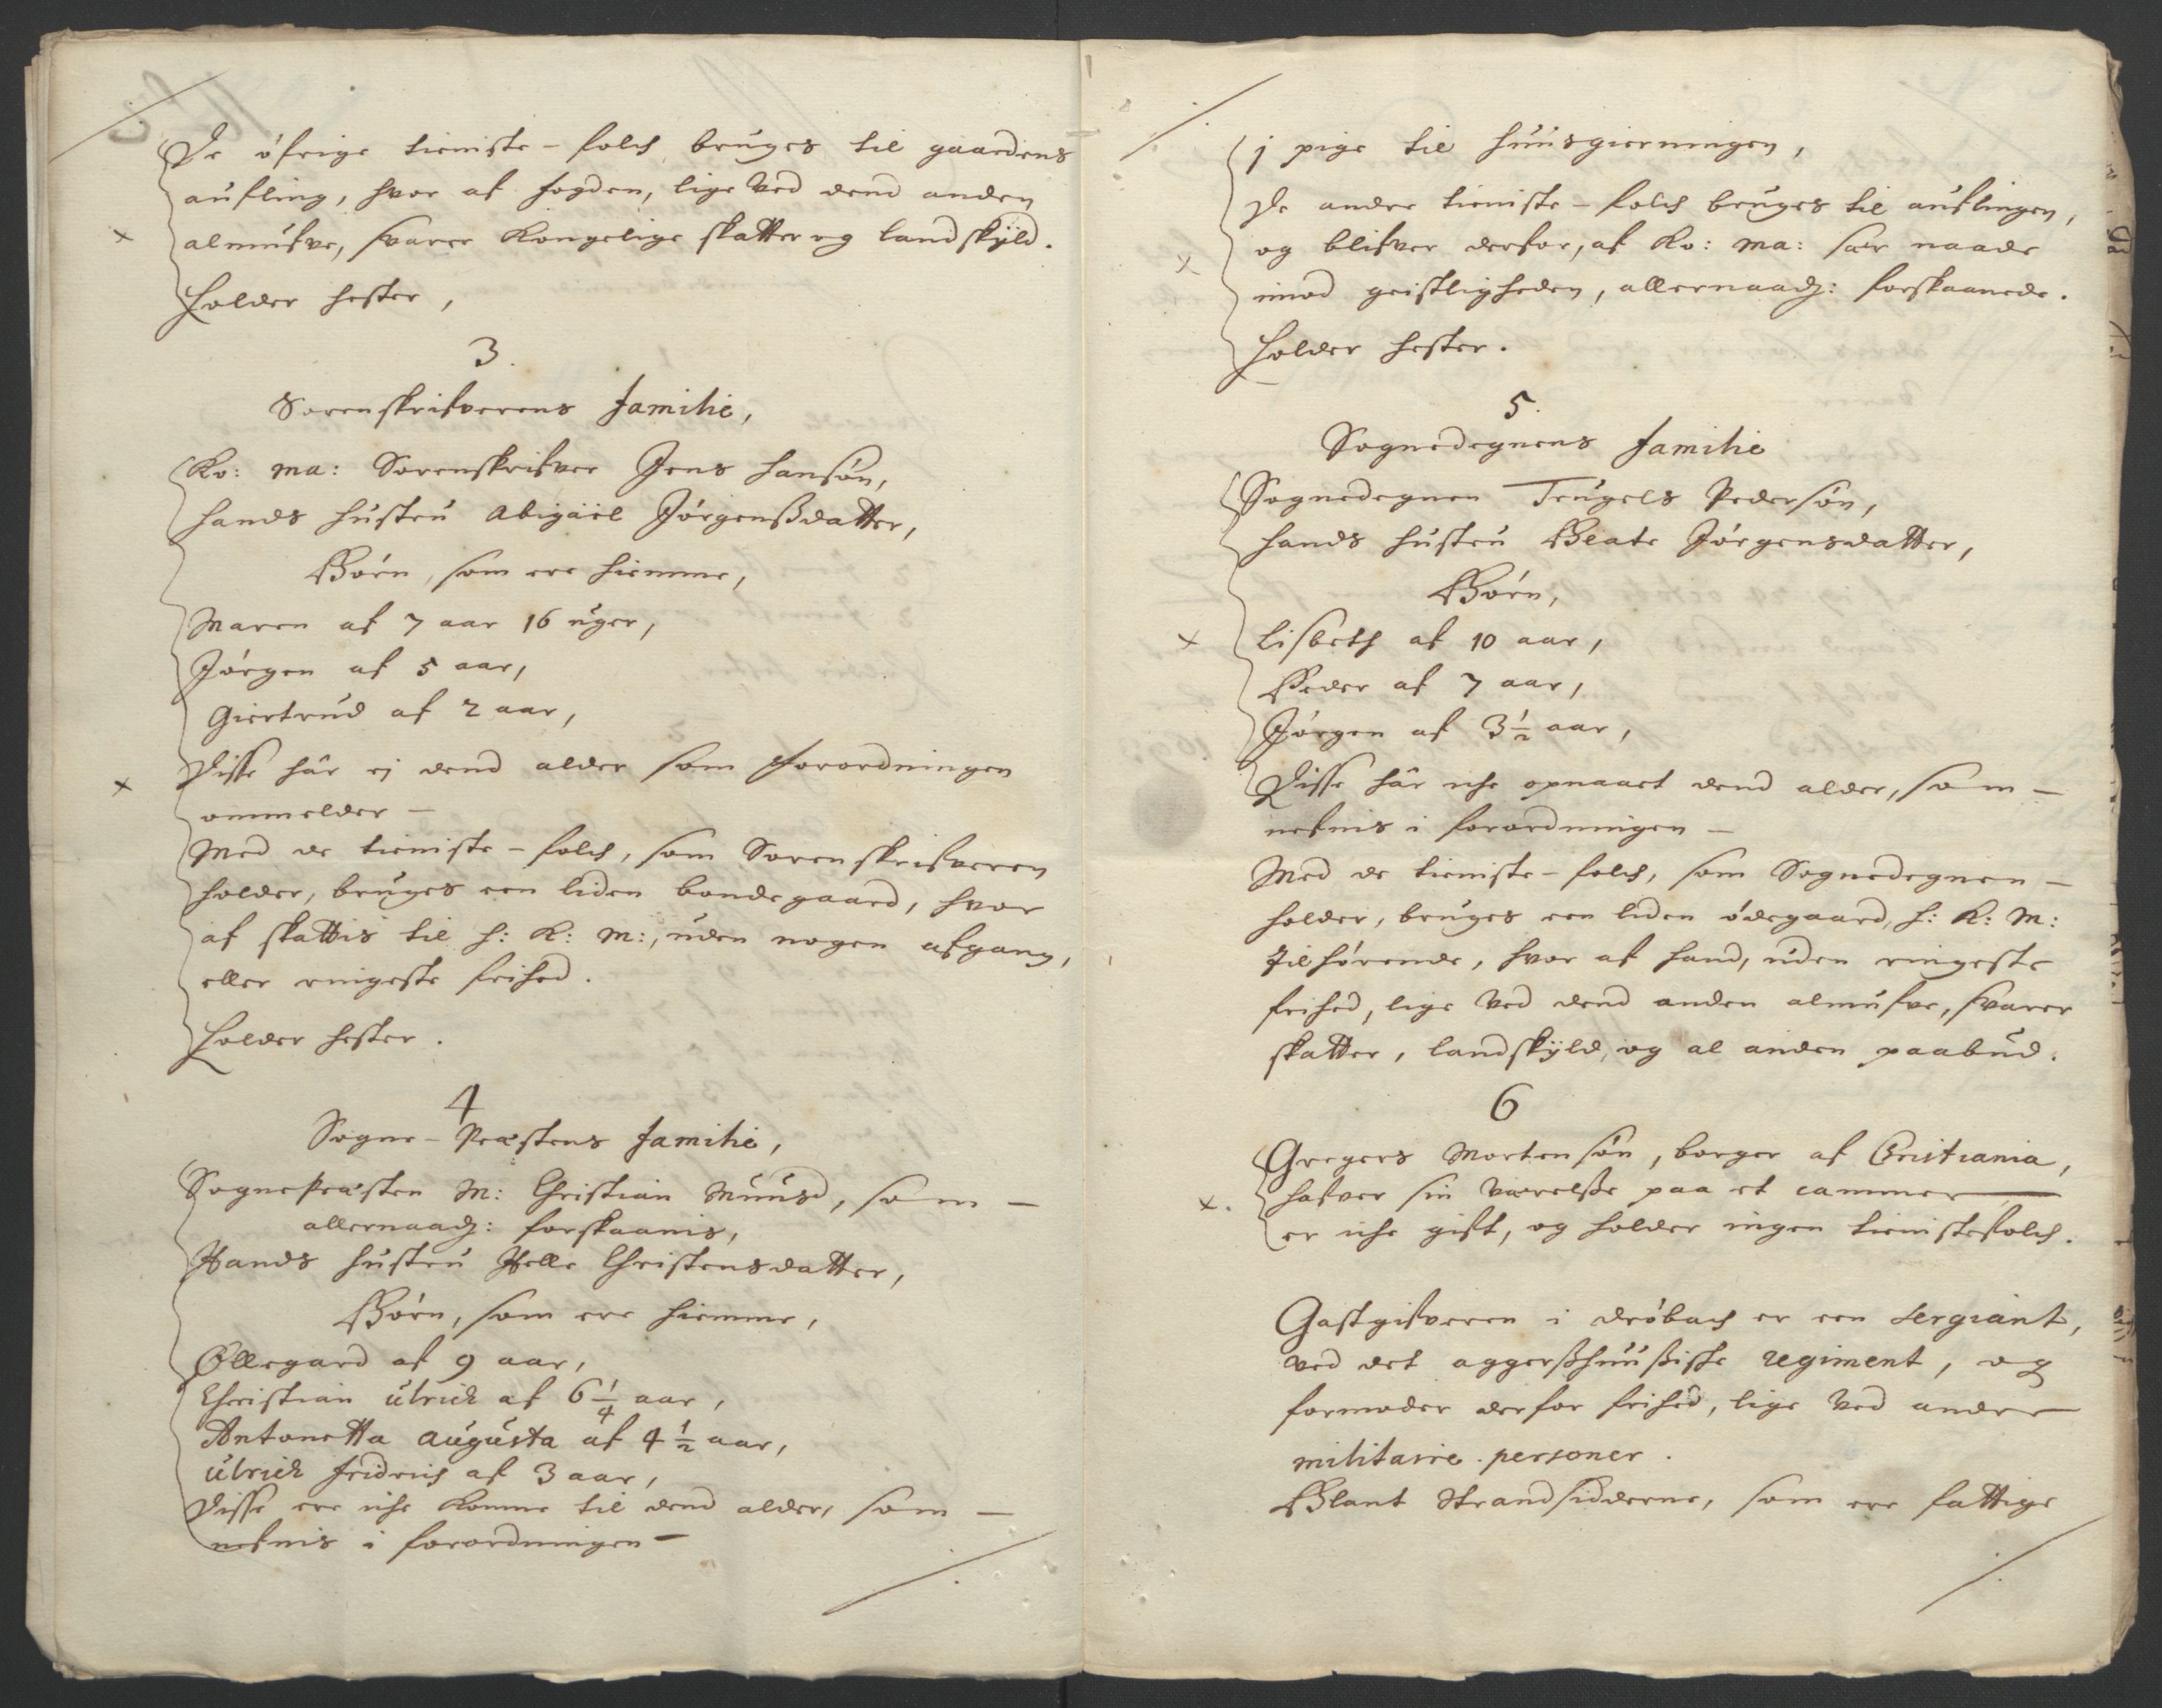 De øfrige tieniste-folch bruges til gaardens
aufling, hvor af fogden, lige ved dend anden
almufve, svarer Kongelige skatter og landskÿld.
Holder hester,
3.
Sorenskrifverens Familie,
Ko: Ma: Sorenskrifver Jens Hansøn,
hands hustru Abigäel Jørgenssdatter,
Børn, som ere hiemme,
Maren af 7 aar 16 uger,
Jørgen af 5 aar,
Giertrud af 2 aar,
Disse här ej dend alder som forordningen
ommelder -
Med de tieniste-folch, som Sorenskrifveren
holder, bruges een liden bondegaard, hvor
af skattis til H: K: M:, uden nogen afgang,
eller ringeste frihed.
Holder hester.
4
Sogne-Præstens Familie,
Sognepræsten M: Christian Muusd, som -
allernaadg: forskaanis,
Hands hustru Helle Christensdatter,
Børn, som ere hiemme,
Øllegaard af 9 aar,
Christian Ulrich af 6 1/4 aar,
Antonetta Augusta af 4 1/2 aar,
Ulrich Fridrich af 3 aar,
Disse ere iche komne til dend alder, som -
nefnis i forordningen -
1 pige til huusgierningen,
De andre tieniste-folch bruges til auflingen,
og blifver derfor, af Ko: Ma: sær naade
imod geistligheden, allernaadg: forskaanede.
Holder hester.
5.
Sognedegnens Familie
Sognedegnen Trugels Pedersøn,
hands hustru Beate Jørgensdatter,
Børn,
Lisbeth af 10 aar,
Peder af 7 aar,
Jørgen af 3 1/2 aar,
Disse här iche opnaaet dend alder, som -
nefnis i forordningen -
Med de tieniste-folch, som Sognedegnen -
holder, bruges een liden ødegaard, H: K: M:
Tilhørende, hvor af hand, uden ringeste
frihed, lige ved dend anden almufve, svarer
skatter, landskÿld, og al anden paabud.
6
Gregers Mortensøn, borger af Cristiania,
hafver sin værelsse paa et cammer -
er iche gift, og holder ingen tienistefolch.
Gastgifveren i Drøbach er een Sergiant,
ved det aggersshuussiske Regiment, og
formoder derfor frihed, lige ved andre
militarie personer.
Blant Strandsidderne, som ere fattige